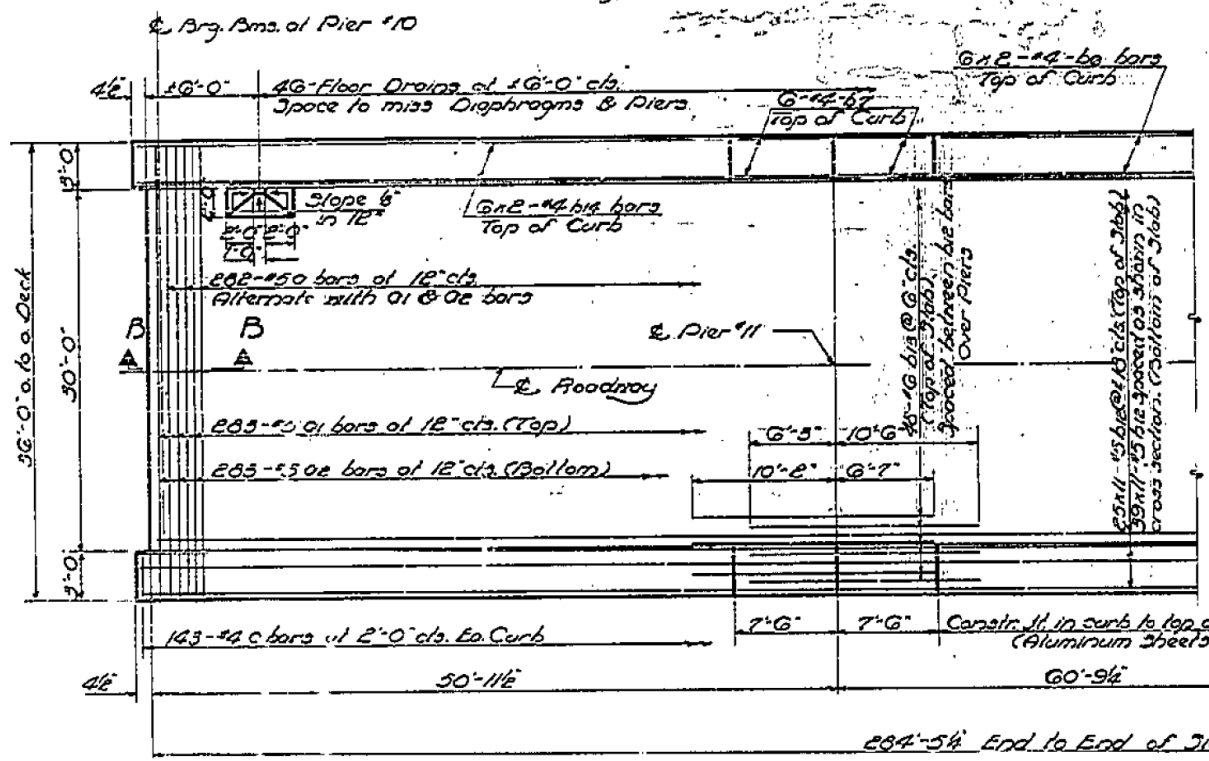 ℄ Brg. Bms. at Pier #10
4½"
±6'-0"
46-Floor Drains at ±6'-0" cts.
Space to miss Diaphragms & Piers
6-#4-b7
Top of Curb
6x2-#4-b8 bars
Top of Curb
3'-0"
2'-0"
Slope ⅛"
in 12"
2'-0" 2'-0"
1'-0"
6x2-#4 b14 bars
Top of Curb
282-#5 a bars at 12" cts.
Alternate with a1 & a2 bars
B
B
36'-0" o. to o. Deck
30'-0"
℄ Pier #11
℄ Roadway
283-#5 a1 bars at 12" cts. (Top)
283-#5 a2 bars at 12" cts. (Bottom)
6'-5"
10'-6"
10'-2"
6'-7"
(Top of Slab)
Spaced between b12 bars
Over Piers
(Top of Slab)
spaced as shown in
cross section. (Bottom of Slab)
3'-0"
143-#4 c bars at 2'-0" cts. Ea. Curb
7'-6"
7'-6"
Constr. Jt. in curb to top o
(Aluminum Sheets
4½"
50'-11½"
60'-9¼"
284'-5¼" End to End of Sl